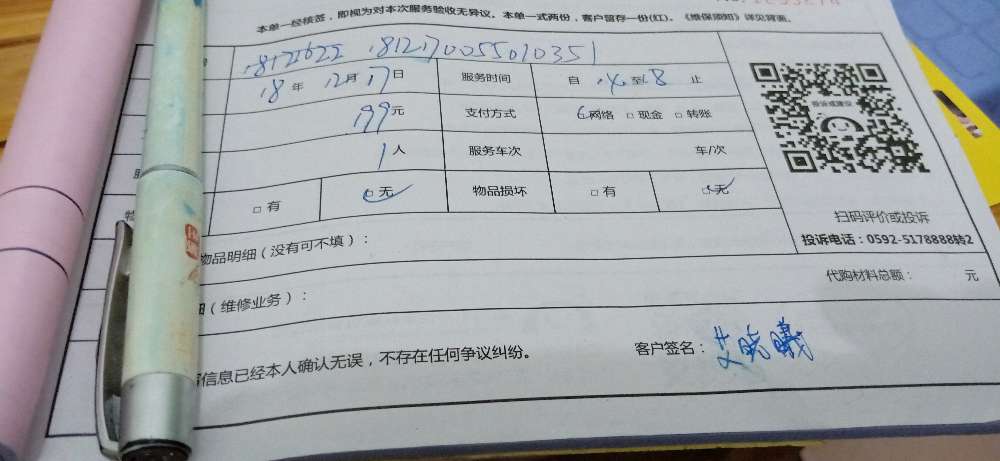 本单一经核签，即视为对本次服务验收无异议。本单一式两份，客户留存一份(红)。《维保须知》详见背面。
18121622 1812170055010351
18年 12月17日 服务时间 自 14 至18 止
199元 支付方式 网络 □ 现金 □ 转账
1人 服务车次 车/次
□ 有 □ 无 物品损坏 □ 有 □ 无
投诉或建议
扫码评价或投诉
投诉电话：0592-5178888转2
物品明细（没有可不填）：
细（维修业务）： 代购材料总额： 元
信息已经本人确认无误，不存在任何争议纠纷。 客户签名：